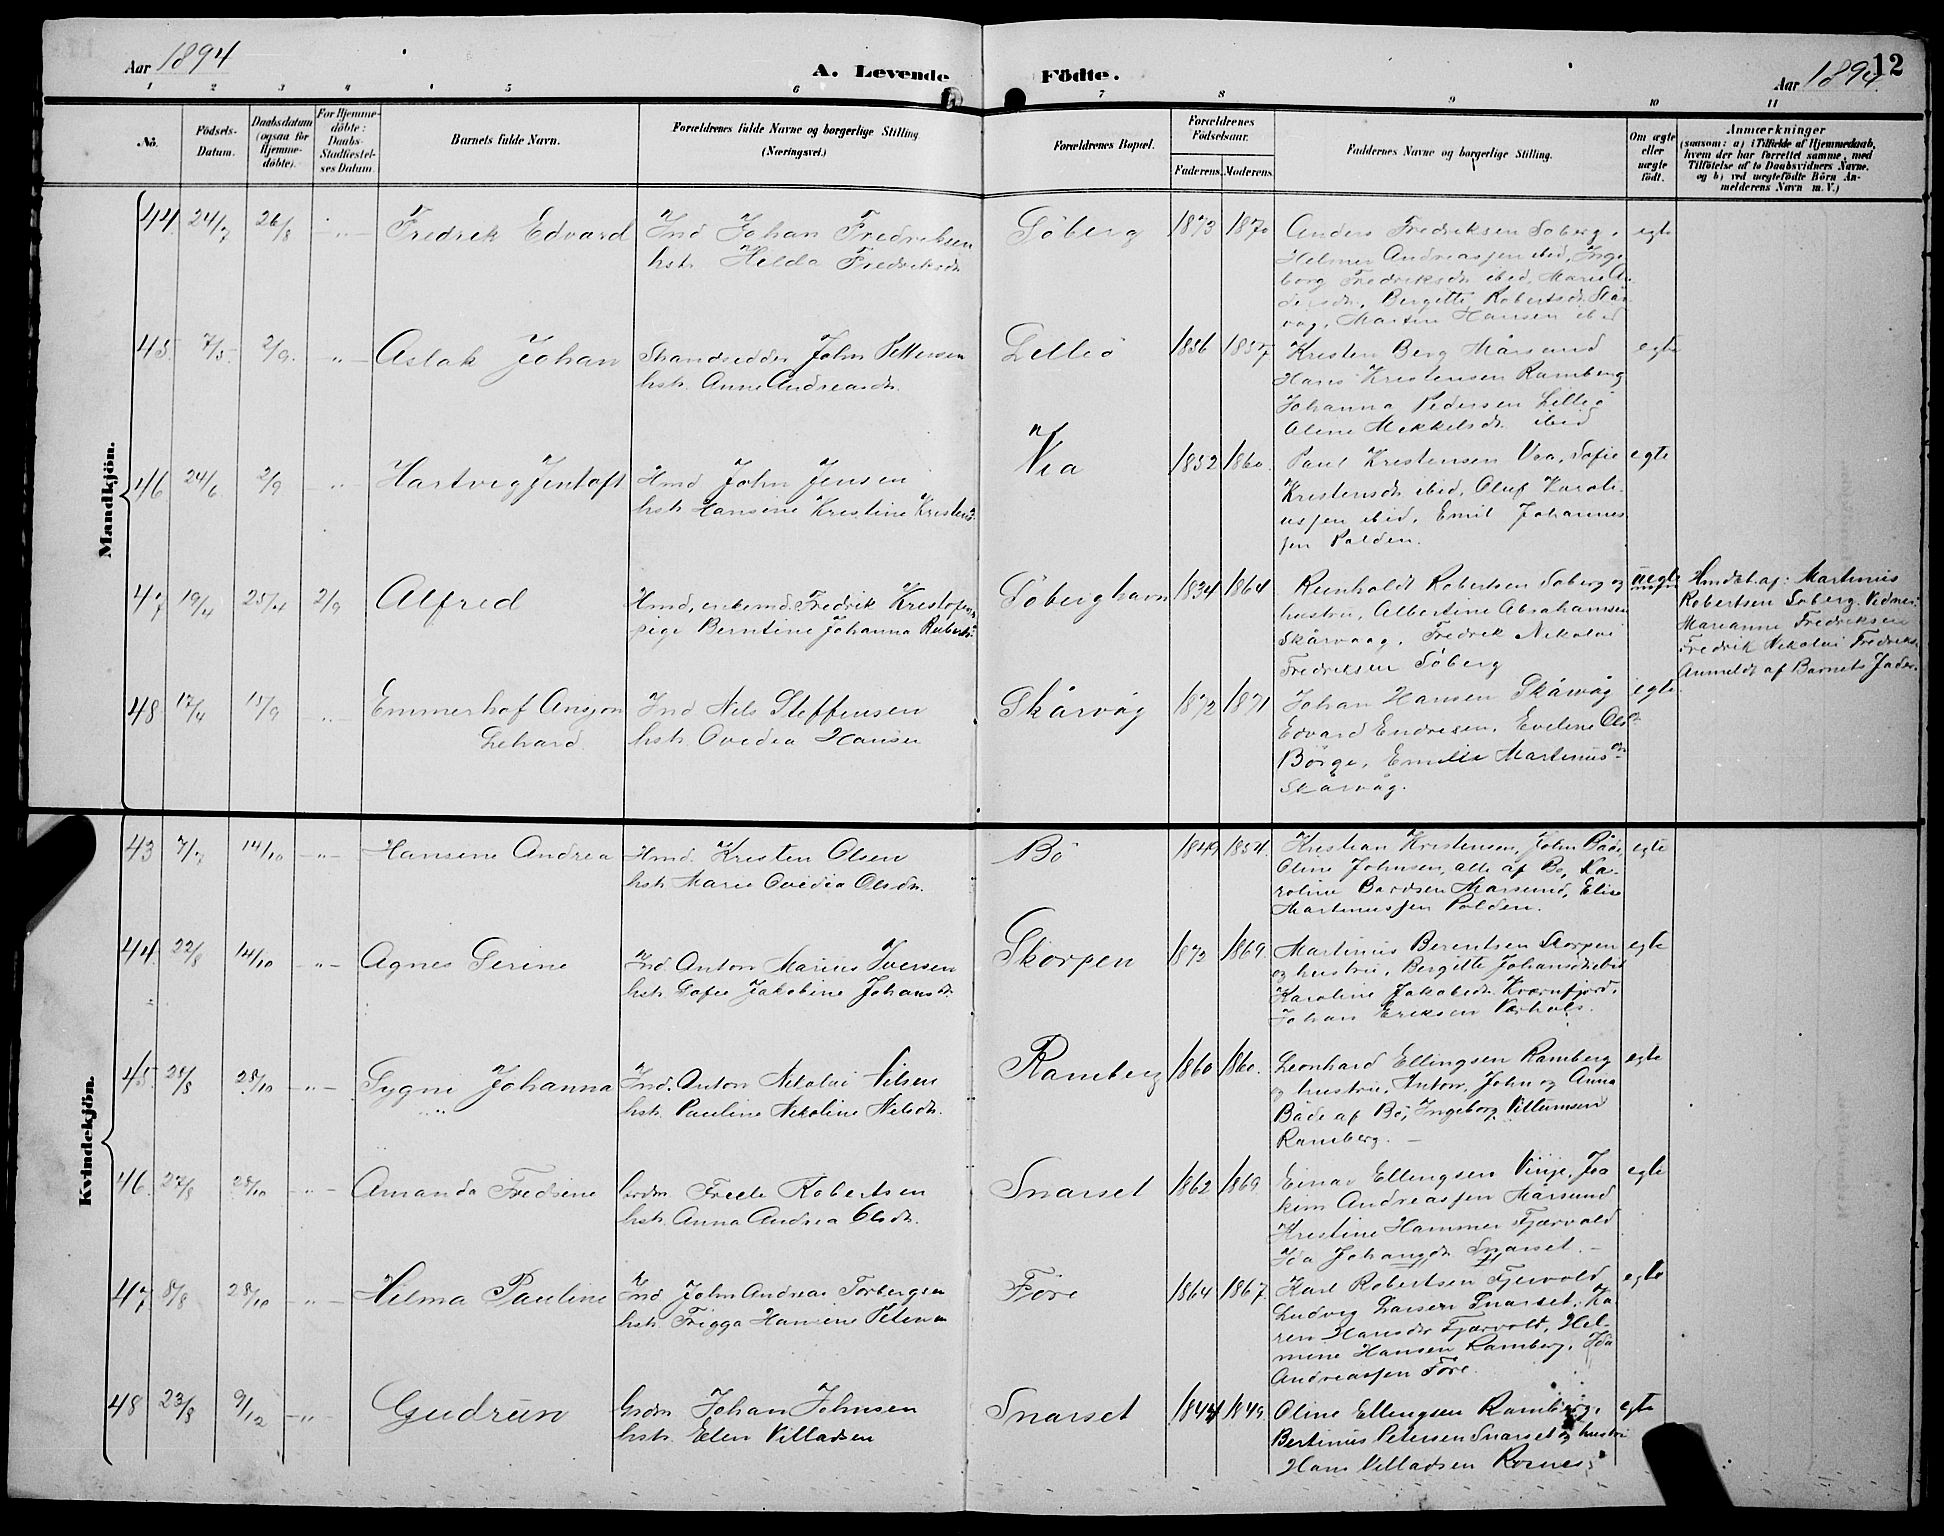 Aar 1894
A. Levende Födte.
Aar 1894.
12
1 2 3 4 5 6 7 8 9 10 11
No.
Födsels-Datum.
Daabsdatum (ogsaa for Hjemme-döbte).
For Hjemme-döbte: Daabs-Stadfæstel-ses Datum.
Barnets fulde Navn.
Forældrenes fulde Navne og borgerlige Stilling (Næringsvei.)
Forældrenes Bopæl.
Forældrenes Födselsaar.
Faderens. Moderens.
Faddernes Navne og borgerlige Stilling.
Om ægte eller uægte födt.
Anmærkninger
(saasom: a) i Tilfælde af Hjemmedaab,
hvem der har forrettet samme, med
Tilföielse af to Daabsvidners Navne,
og b) ved uægtefödte Börn An-
melderens Navn m. V.)
Mandkjön.
44 24/7 26/8 -"- Fredrik Edvard
Ind Johan Fredriksen
hstr. Helda Fredriksdr.
Söberg 1873 1870
Anders Fredriksen Söberg,
Helmer Andreasjen ibid, Inge
borg Fredriksdr. ibid, Marie An
dersdr, Bergitte Robertsdr. Skår
vag, Martin Hansen ibid
egte
45. 7/5 2/9. -"- Aslak Johan
Strandsidder John Pettersen
hstr. Anne Andreasdr.
Lilleö 1856 1857
Kristen Berg Mårsund
Hans Kristensen Ramberg
Johanna Pedersen Lilleö
Oline Mekkelsdr. ibid
egte
46 24/6 2/9 -"- Hartvig Jentoft
Hmd John Jensen
hstr. Hansine Kristine Kristens
Vea 1852 1860.
Paul Kristensen Vea, Sofie
Kristensdr ibid, Oluf Karoli
usjen ibid, Emil Johannes
jen Polden.
egte
47 19/4 25/4 2/9 Alfred
Hmd, enkemd. Fredrik Kristofers
pige Berntine Johanna Roberts
Söberghavn 1834 1864
Reinholdt Robertsen Söberg og
hustru, Albertine Abrahamsen
Skårvaag, Fredrik Nikolai
Fredriksen Söberg
uegte
Hmdöbt af: Martinus
Robertsen Söberg. Vidner:
Marianne Fredriksen
Fredrik Nikolai Fredriks.
Anmeldt af Barnets Fader.
48 17/4 15/9 -"- Emmerhof Ansjon
Lehard
Ind Nils Steffensen
hstr. Ovedia Hansen
Skårvåg 1872 1871
Johan Hansen Skårvåg
Edvard Endresen, Eveline Ols
Börge, Emilie Martinus
Skårvåg.
egte
Kvindekjön.
43 7/7 14/10 -"- Hansine Andrea
Hmd. Kristen Olsen
hstr. Marie Ovedia Olsdr.
Bö 1849 1854.
Kristian Kristensen, John Både,
Oline Johnsen, alle af Bö, Ka-
roline Bardsen Marsund, Elise
Martinusjen Polden.
egte
44 22/8 14/10 -"- Agnes Serine
Ind. Anton Marius Iversen
hstr. Sofie Jakobine Johansdr.
Skorpen 1872 1869.
Martinius Berentsen Skorpen
og hustru, Bergitte Johansdr ibid
Karoline Jakobsdr. Kværnfjord,
Johan Eriksen Værhols.
egte
45. 21/8 28/10 -"- Sygne Johanna
Ind. Anton Nikolai Nilsen
hstr. Pauline Nikoline Nilsdr.
Ramberg 1860 1860.
Leonhard Ellingsen Ramberg
og hustru, Anton, John og Anna
Bade af Bö, Ingeborg Villumsen
Ramberg. -
egte
46. 27/8 28/10 -"- Amanda Fredsine
Grdm. Frede Robertsen
hstr. Anna Andrea Olsdr.
Snarset 1862 1869
Einar Ellingsen Vinje, Joa
kim Andreasjen Marsund
Kristine Hammer Fjærvold
Ida Johansdr Snarset. -
egte
47 8/8 28/10 -"- Hilma Pauline
Ind John Andreas Torbergsen
hstr. Frigga Hansine Petersen
Före 1864 1867.
Karl Robertsen Fjervold
Ludvig Larsen Snarset, Ka
ren Hansdr Fjærvold, Hel-
mine Hansen Ramberg, Ida
Andreasjen Före.
egte
48 23/8 9/12 -"- Gudrun
Grdm Johan Johnsen
hstr. Elen Villadsen
Snarset 1844 1849.
Oline Ellingsen Ramberg,
Bertinus Petersen Snarset og hustru
Hans Villadsen Rornes
egte